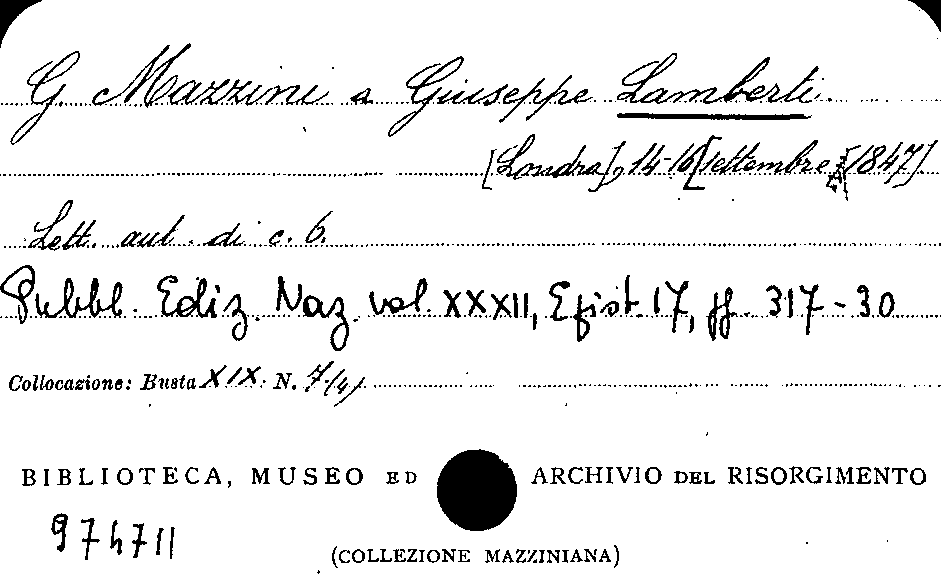 G. Mazzini a Giuseppe Lamberti.
[Londra], 14-16 [settembre 1847]
Lett. aut. di c. 6.
Pubbl. Ediz. Naz. vol. XXXII, Epist. 17, pp. 317-30
Collocazione: Busta XIX. N. 7/(4)
BIBLIOTECA, MUSEO ED ARCHIVIO DEL RISORGIMENTO
(COLLEZIONE MAZZINIANA)